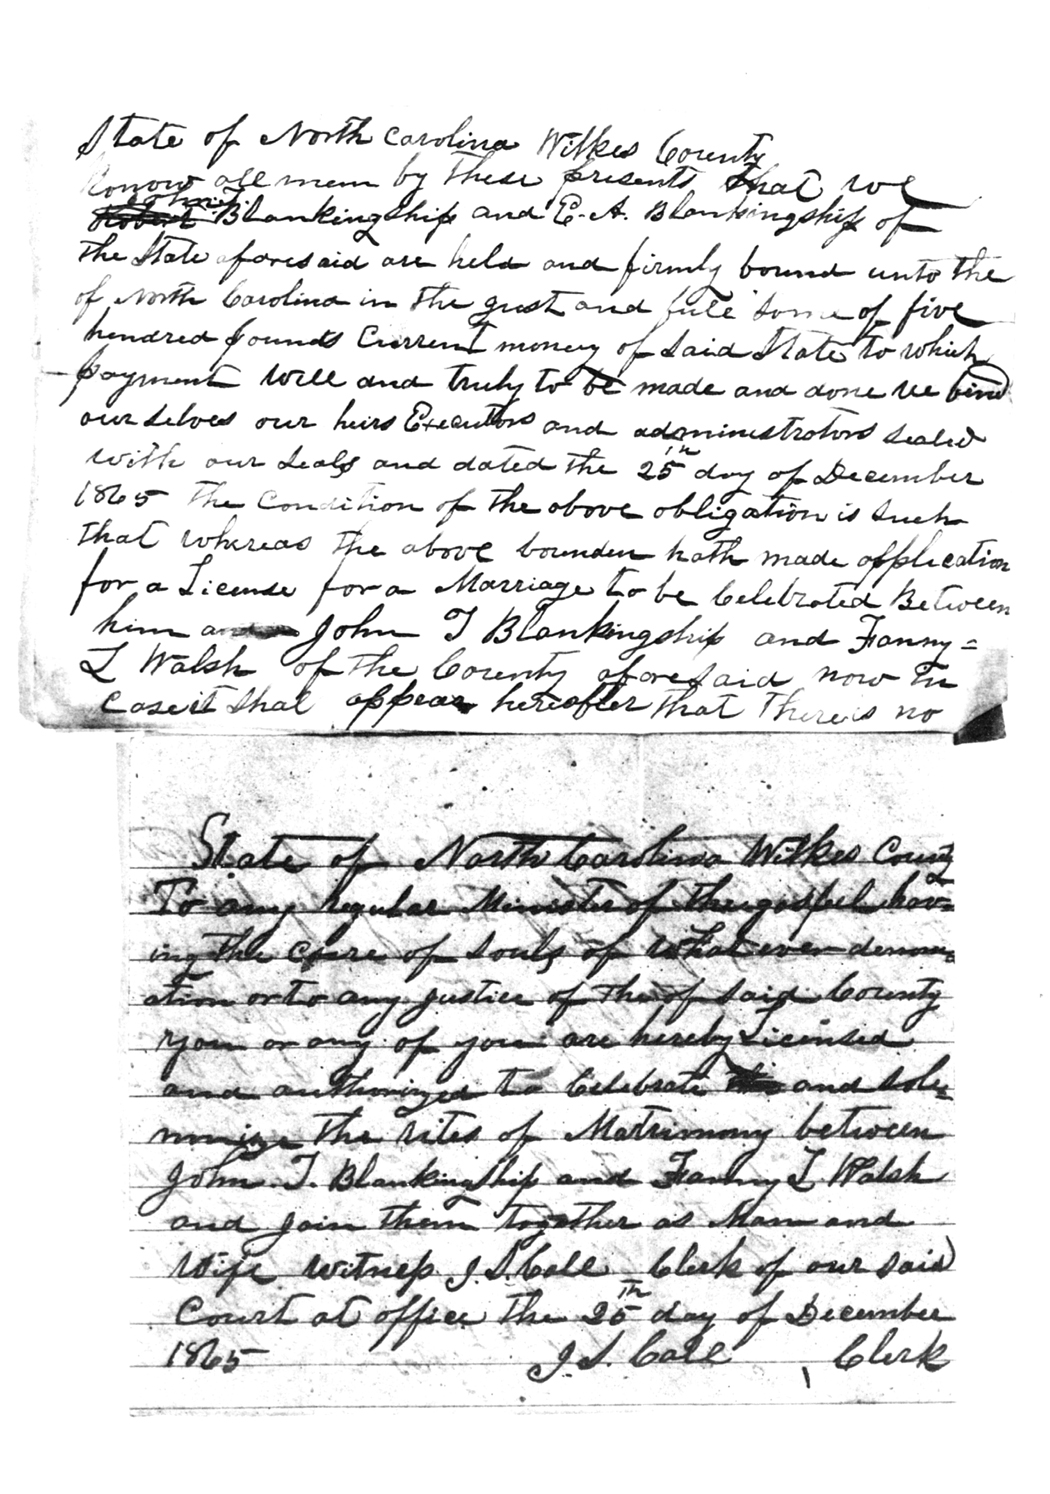 State of North Carolina Wilkes County
Konow all mem by these presents that we
John T.
Robert Blankingship and E. A. Blankingship of
the State aforesaid are held and firmly bound unto the
of North Carolina in the gust and full some of five
hundred pounds Current money of Said State to which
payment will and truly to be made and done we bind
our selves our heirs Executors and administrators sealed
with our seals and dated the 25th day of December
1865 The Condition of the above obligation is Such
that whereas the above bounden hath made application
for a License for a Marriage to be Celebrated Between
him and John T Blankingship and Fanny =
L Walsh of the County aforesaid now in
Case it shal appear hereafter that there is no
State of North Carolina Wilkes County
To any regular Minister of the gospel hav=
ing the Care of Souls of what ever denom=
ation or to any justice of the of said County
you or any of you are hereby Licensed
and authorized to Celebrate and Sole=
monize the rites of Matrimony between
John T. Blankingship and Fanny L Walsh
and join them together as Man and
Wife witness J. S. Call Clerk of our said
Court at office the 25th day of December
1865 J. S. Call Clerk